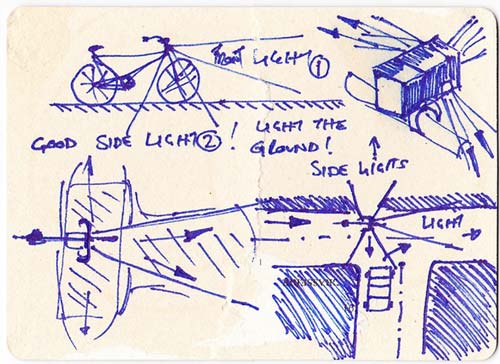 FRONT LIGHT 1
GOOD SIDE LIGHT 2 !
LIGHT THE
GROUND!
SIDE LIGHTS
LIGHT